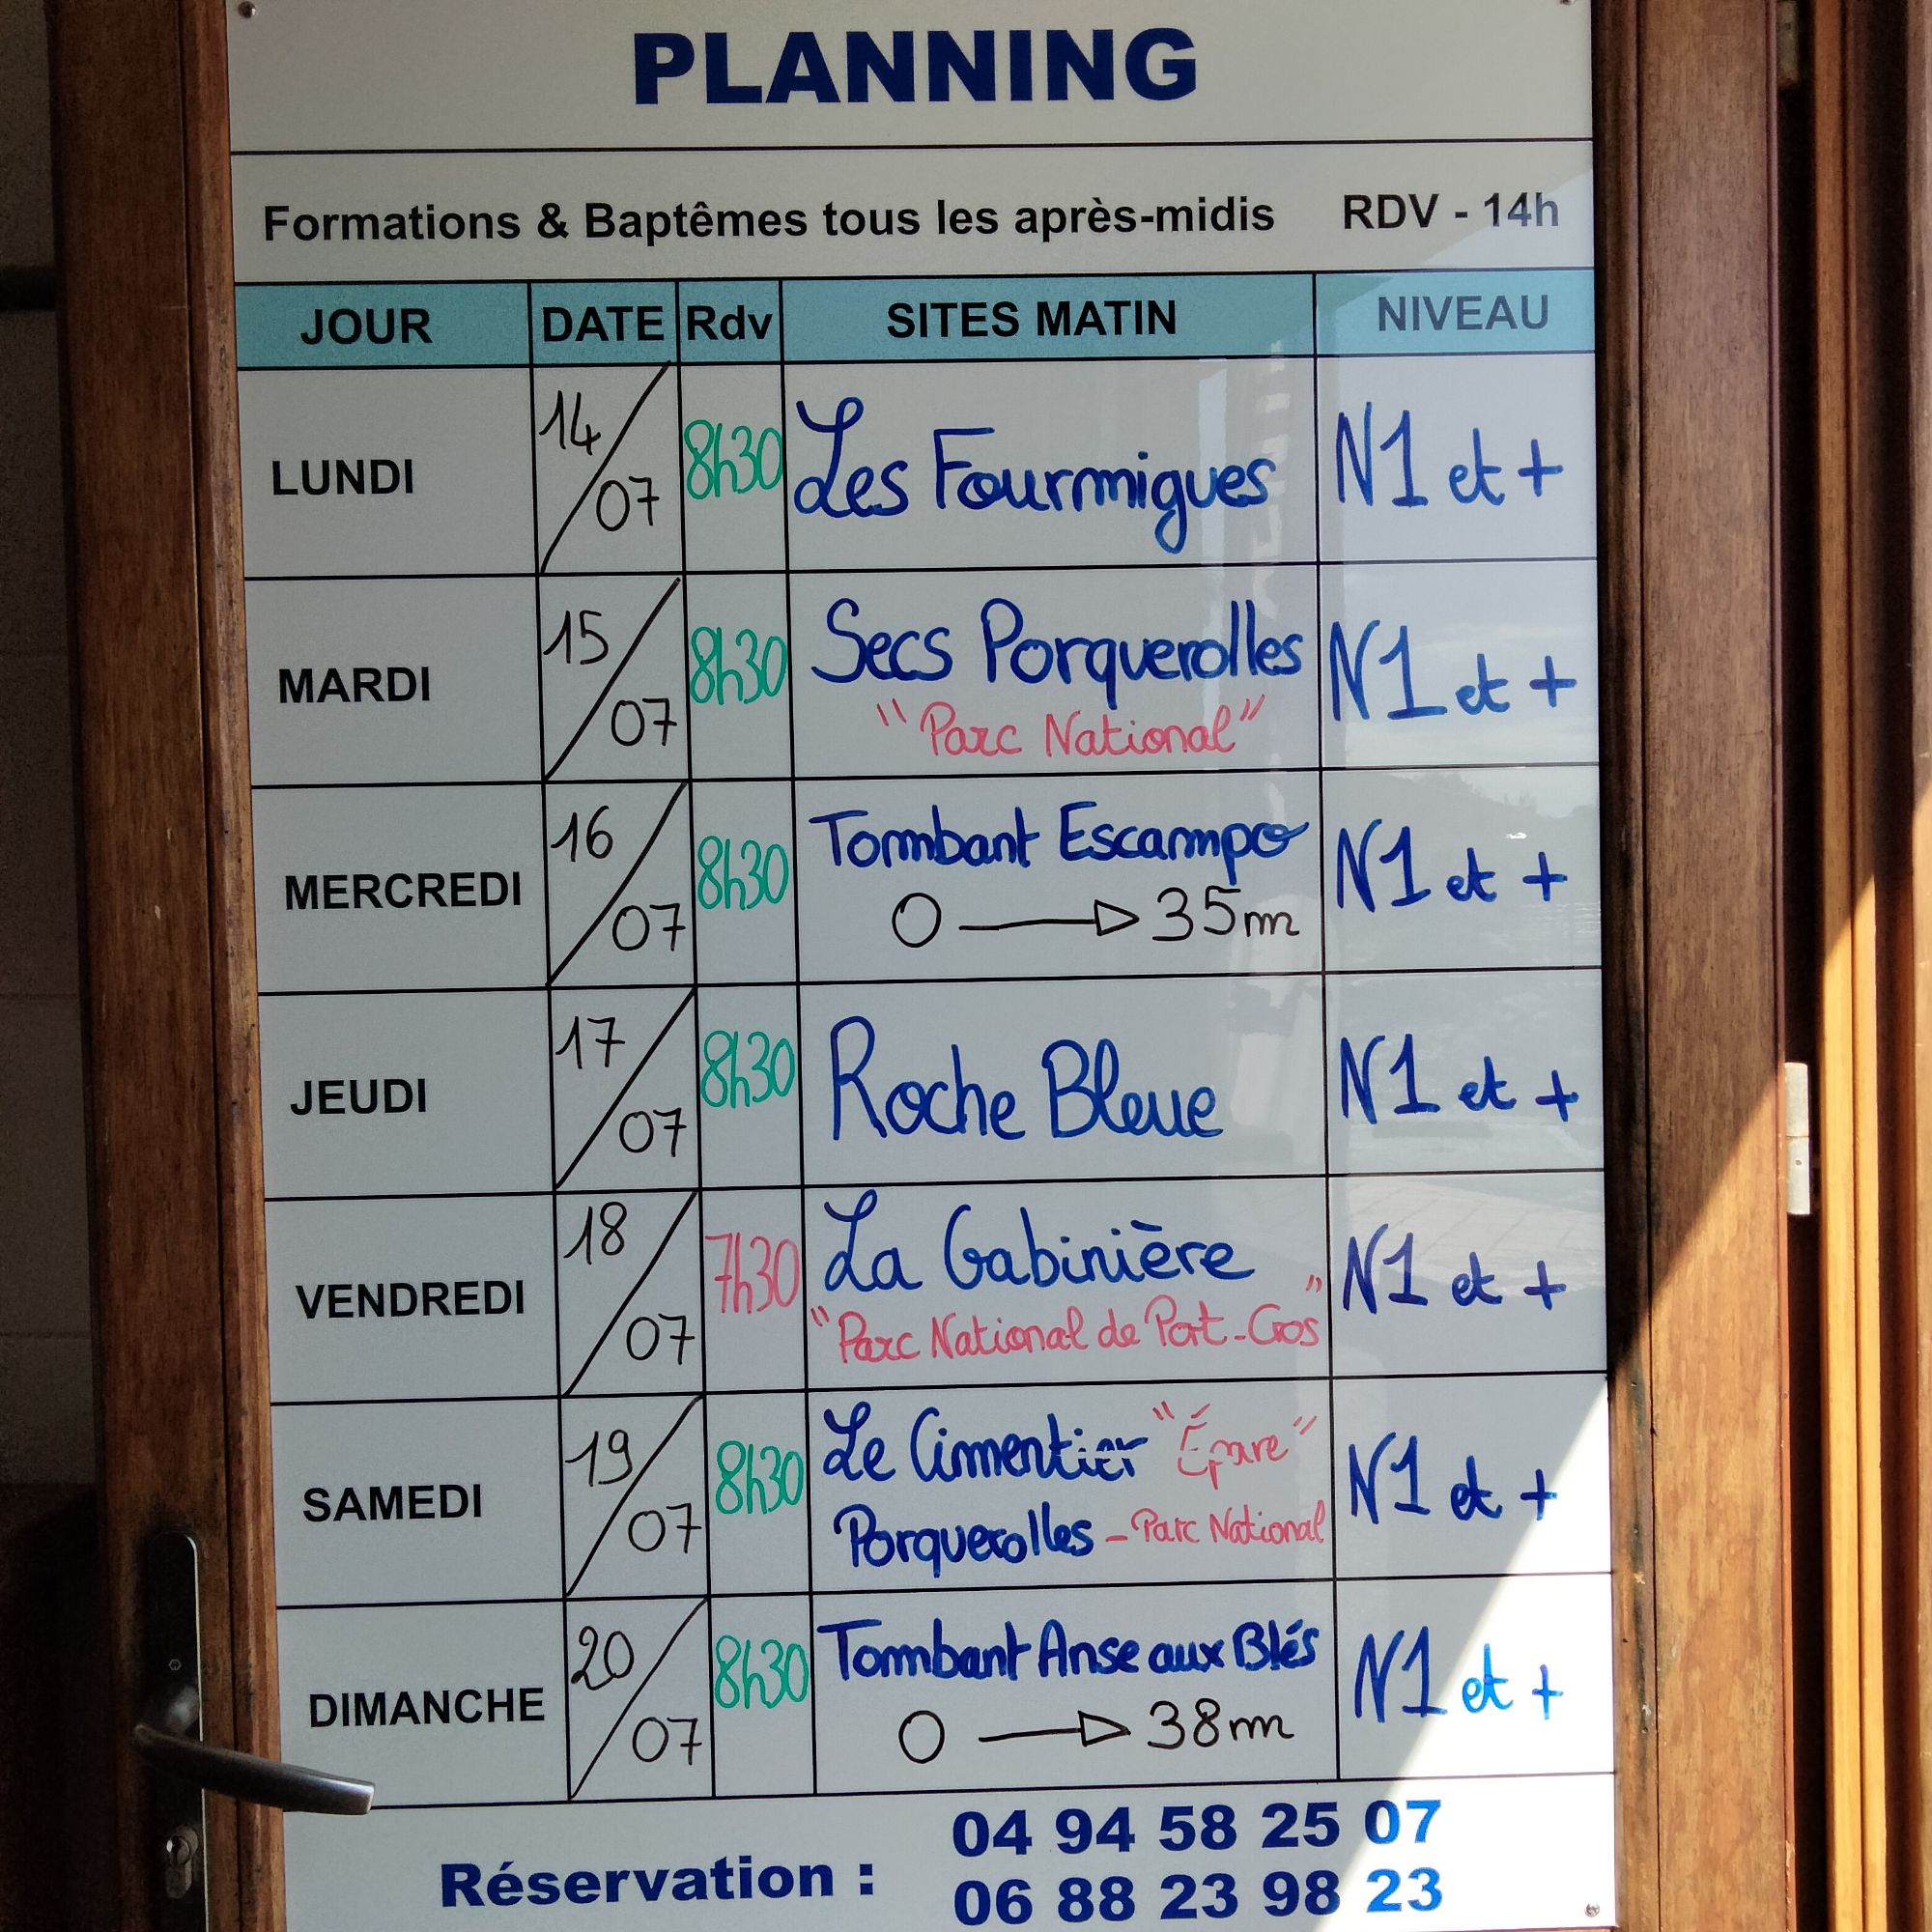 PLANNING
Formations & Baptêmes tous les après-midis RDV - 14h
JOUR DATE Rdv SITES MATIN NIVEAU
LUNDI 14/07 8h30 Les Fourmigues N1 et +
MARDI 15/07 8h30 Secs Porquerolles N1 et +
"Parc National"
MERCREDI 16/07 8h30 Tombant Escampo N1 et +
0 → 35m
JEUDI 17/07 8h30 Roche Bleue N1 et +
VENDREDI 18/07 7h30 La Gabinière N1 et +
"Parc National de Port-Cros"
SAMEDI 19/07 8h30 Le Cimentier "Épave" N1 et +
Porquerolles - Parc National
DIMANCHE 20/07 8h30 Tombant Anse aux Blés N1 et +
0 → 38m
Réservation : 04 94 58 25 07
06 88 23 98 23